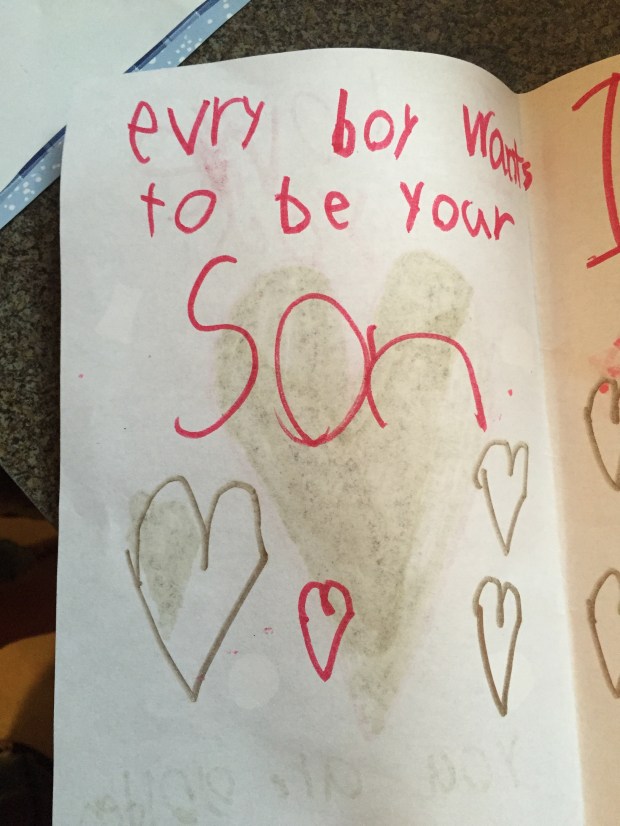 evry boy wants
to be your
Son.